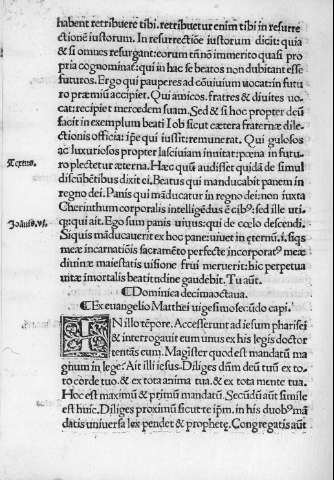 habent retribuere tibi. retribuetur enim tibi in resurre
ctiõe iustorum. In resurrectiõe iustorum dicit: quia
& si omnes resurgant: eorum tñ nõ immerito quasi pro
pria cognominat̃: qui in hac se beatos non dubitant esse
futuros. Ergo qui pauperes ad cõuiuium uocat: in futu
ro præmiũ accipiet. Qui amicos. fratres & diuites uo-
cat: recipiet mercedem suam. Sed & si hoc propter deũ
facit in exemplum beati Iob sicut cætera fraternæ dile-
ctionis officia: ip̃e qui iussit: remunerat. Qui gulosos
ac luxuriosos propter lasciuiam inuitat: pœna in futu-
Tertius.
ro plectetur æterna. Hæc quũ audisset quidã de simul
discũbẽtibus dixit ei. Beatus qui manducabit panem in
regno dei. Panis qui mãducatur in regno dei: non iuxta
Cherinthum corporalis intelligẽdus ẽ cib⁹: sed ille uti-
Ioãnis. vi.
q̃: qui ait. Ego sum panis uiuus: qui de cœlo descendi.
Siquis mãducauerit ex hoc pane: uiuet in eternũ. i. siq̃s
meæ incarnatiõis sacramẽto perfecte incorporat⁹ meæ
diuinæ maiestatis uisione frui meruerit: hic perpetua
uitæ imortalis beatitudine gaudebit. Tu aũt.
¶Dominica decimaoctaua.
¶Ex euangelio Matthei uigesimosecũdo capi.
IN illo tẽpore. Accesserunt ad iesum pharisei
& interrogauit eum unus ex his legis doctor
tentãs eum. Magister quod est mandatũ ma
gnum in lege? Ait illi iesus. Diliges dñm deũ tuũ ex to-
to corde tuo. & ex tota anima tua. & ex tota mente tua.
Hoc est maximũ & primũ mandatũ. Secũdũ aũt simile
est huic. Diliges proximũ sicut te ip̃m. in his duob⁹ mã
datis uniuersa lex pendet & prophetę. Congregatis aũt